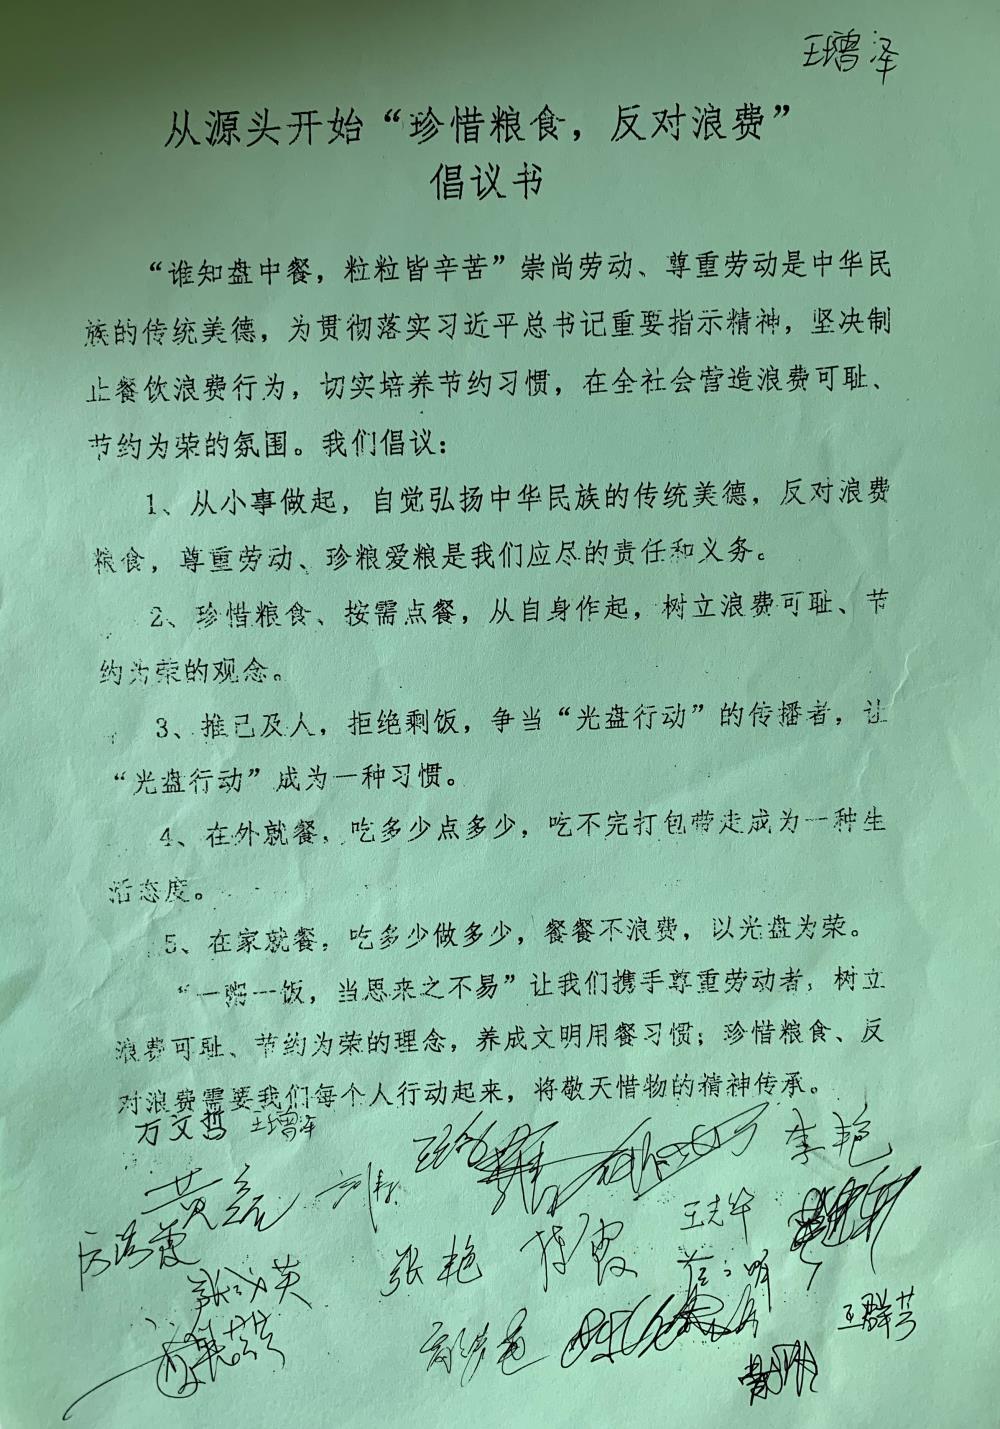 王增泽
从源头开始“珍惜粮食，反对浪费”
倡议书
“谁知盘中餐，粒粒皆辛苦”崇尚劳动、尊重劳动是中华民
族的传统美德，为贯彻落实习近平总书记重要指示精神，坚决制
止餐饮浪费行为，切实培养节约习惯，在全社会营造浪费可耻、
节约为荣的氛围。我们倡议：
1、从小事做起，自觉弘扬中华民族的传统美德，反对浪费
粮食，尊重劳动、珍粮爱粮是我们应尽的责任和义务。
2、珍惜粮食、按需点餐，从自身作起，树立浪费可耻、节
约为荣的观念。
3、推己及人，拒绝剩饭，争当“光盘行动”的传播者，让
“光盘行动”成为一种习惯。
4、在外就餐，吃多少点多少，吃不完打包带走成为一种生
活态度。
5、在家就餐，吃多少做多少，餐餐不浪费，以光盘为荣。
“一粥一饭，当思来之不易”让我们携手尊重劳动者，树立
浪费可耻、节约为荣的理念，养成文明用餐习惯；珍惜粮食、反
对浪费需要我们每个人行动起来，将敬天惜物的精神传承。
万文哲 王增泽 李艳
王志华
张艳
王群芳